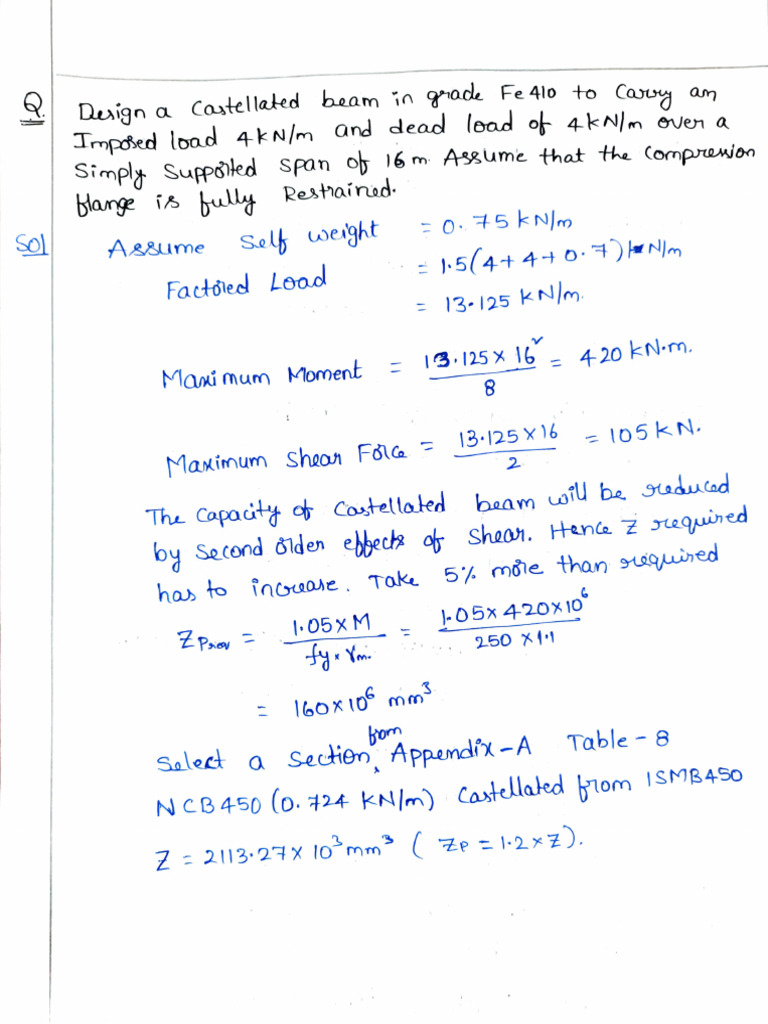 Q. Design a Castellated beam in grade Fe410 to Carry an
Imposed load 4kN/m and dead load of 4kN/m over a
Simply Supported span of 16m. Assume that the Compression
flange is fully Restrained.
Sol Assume Self weight = 0.75kN/m
Factored Load = 1.5(4+4+0.7)kN/m
= 13.125 kN/m.
Maximum Moment = 13.125 × 16² / 8 = 420 kN.m.
Maximum Shear Force = 13.125×16 / 2 = 105kN.
The Capacity of Castellated beam will be reduced
by Second order effects of Shear. Hence Z required
has to increase. Take 5% more than required
Z Prov = 1.05×M / fy × γm. = 1.05×420×10⁶ / 250 ×1.1
= 160×10⁶ mm³
Select a Section from Appendix-A Table-8
NCB450(0.724 kN/m) Castellated from ISMB450
Z = 2113.27×10³mm³ ( ZP = 1.2×Z).